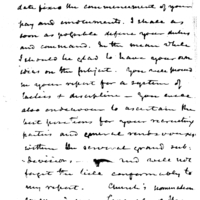 date fixes the commencement of your
pay and emoluments. I shall as
soon as possible define your duties
and command. In the mean while
I should be glad to have your own
ideas on the subject. You will send
in your report for a system of
tactics & discipline. You will
also endeavour to ascertain the
best positions for your recruiting
parties and general rendezvous
within the several grand sub-
divisions, and will not
forget the
my report. Church's nomination